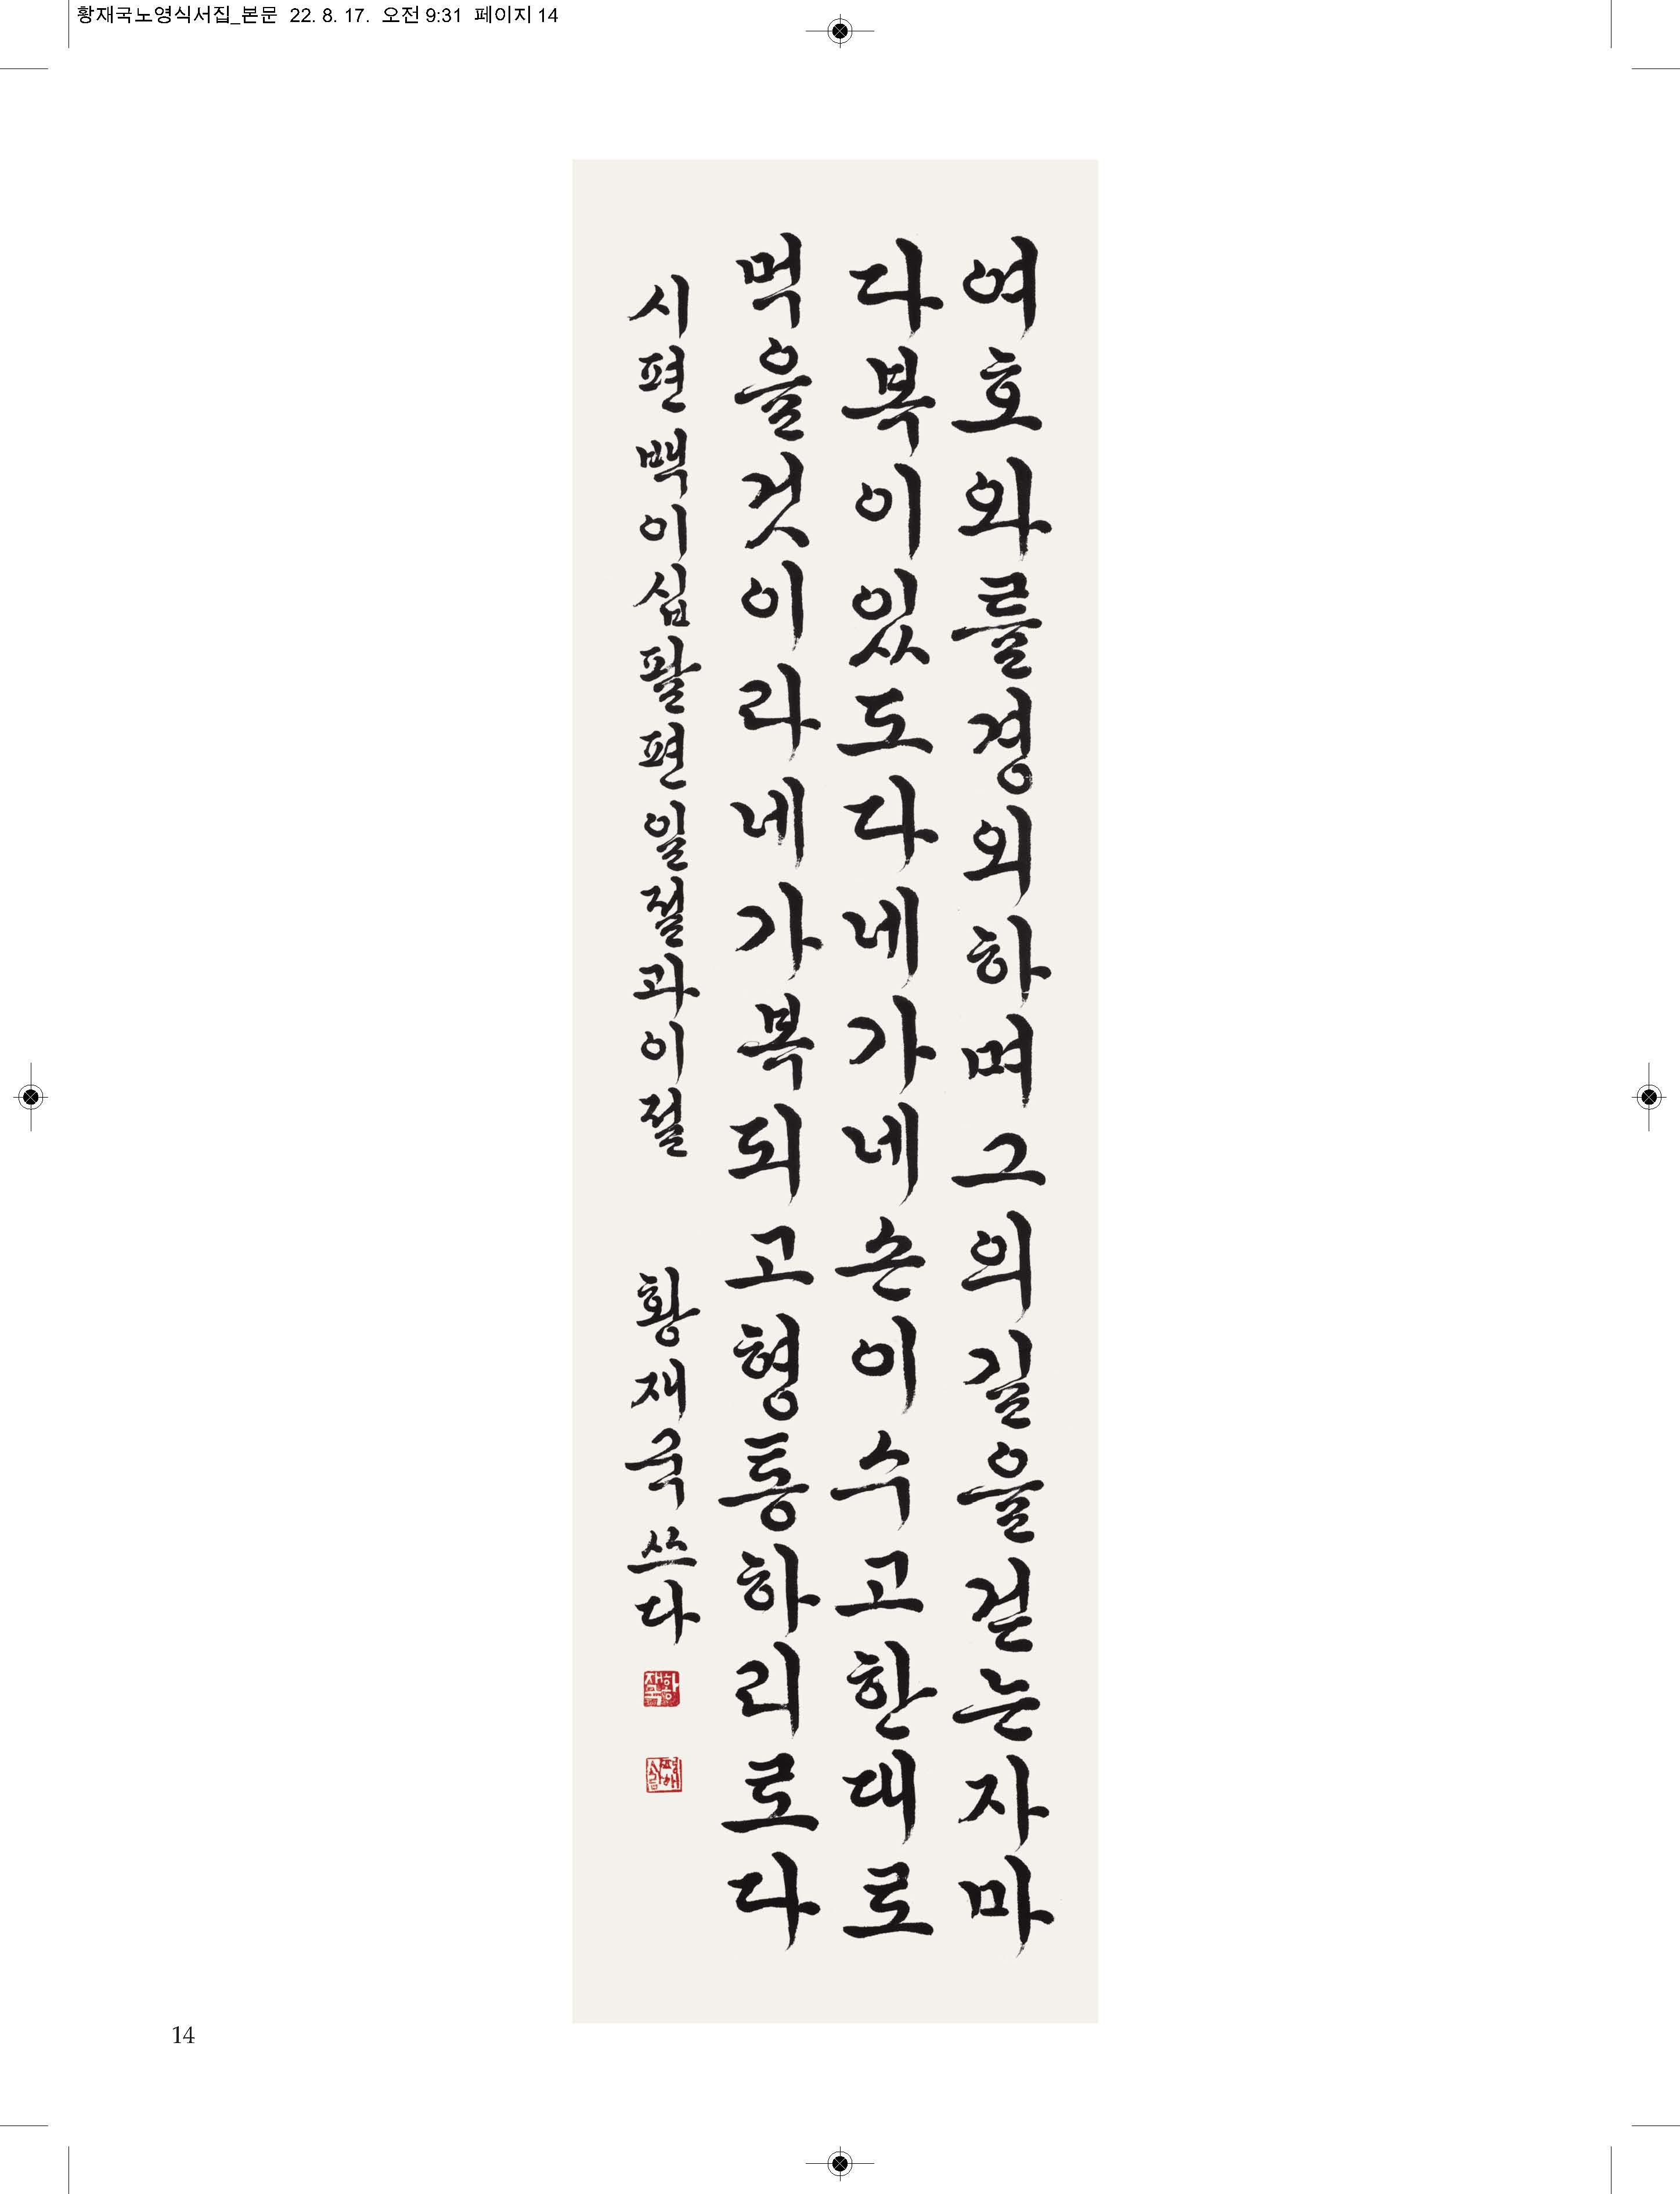 황재국노영식서집_본문 22. 8. 17. 오전 9:31 페이지 14
여호와를경외하며그의길을걷는자마
다복이있도다네가네손이수고한대로
먹을것이라네가복되고형통하리로다
시편백이십팔편일절과이절 황재국쓰다
14